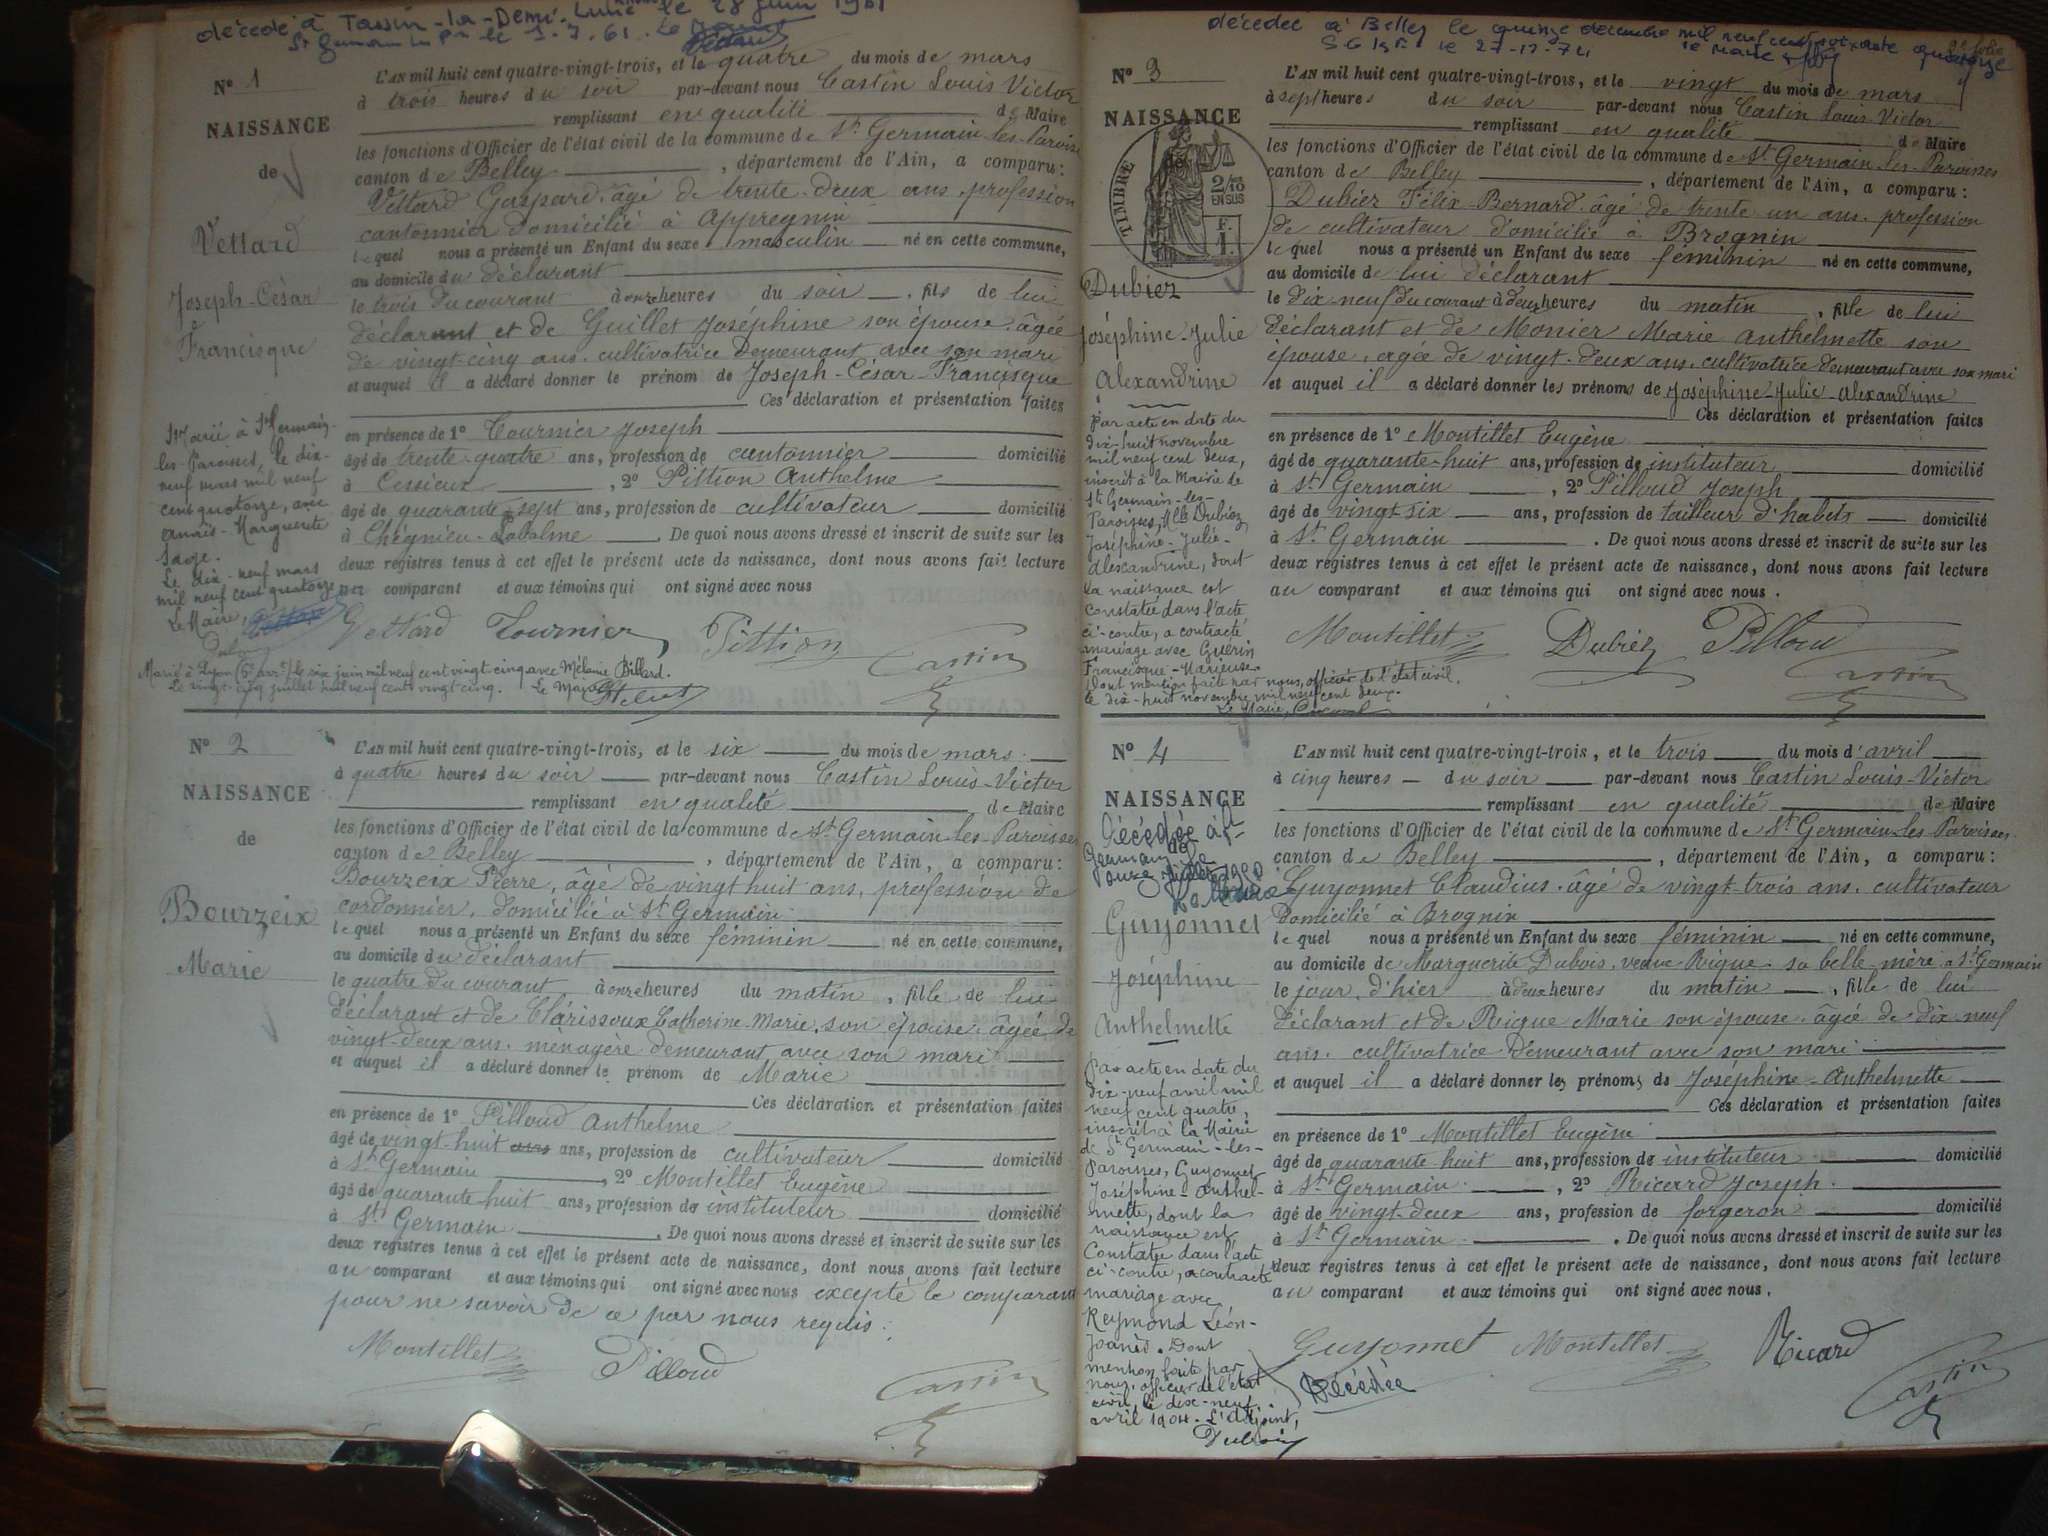 décédé à Tassin-la-Demi-Lune le 28 juin 1961
St Germain les Pses le 3.7.61. Le Maire
N° 1
NAISSANCE
de
Vettard
Joseph-César
Francisque
L'AN mil huit cent quatre-vingt-trois, et le quatre du mois de mars
à trois heures du soir par-devant nous Castin Louis Victor
remplissant en qualité de Maire
les fonctions d'Officier de l'état civil de la commune de St Germain-les-Paroisses
canton de Belley, département de l'Ain, a comparu:
Vettard Gaspard, âgé de trente-deux ans, profession
cantonnier domicilié à Appregnin
lequel nous a présenté un Enfant du sexe masculin né en cette commune,
au domicile du déclarant
le trois du courant à onze heures du soir, fils de lui
déclarant et de Guillet Joséphine son épouse, âgée
de vingt-cinq ans, cultivatrice demeurant avec son mari
et auquel il a déclaré donner le prénom de Joseph-César-Francisque
Ces déclaration et présentation faites
en présence de 1° Tournier Joseph
âgé de trente-quatre ans, profession de cantonnier domicilié
à Cessieux, 2° Pittion Anthelme
âgé de quarante-sept ans, profession de cultivateur domicilié
à Chégnieu-Labalme. De quoi nous avons dressé et inscrit de suite sur les
deux registres tenus à cet effet le présent acte de naissance, dont nous avons fait lecture
au comparant et aux témoins qui ont signé avec nous
Vettard Tournier Pittion Castin
Marié à St Germain-
les-Paroisses, le dix-
neuf mars mil neuf
cent quatorze, avec
Marguerite
Le dix-neuf mars
mil neuf cent quatorze
Le Maire,
Marié à Lyon (6e arrt) le six juin mil neuf cent vingt-cinq avec Mélanie Billard.
Le vingt-cinq juillet mil neuf cent vingt cinq. Le Maire
N° 2
NAISSANCE
de
Bourzeix
Marie
L'AN mil huit cent quatre-vingt-trois, et le six du mois de mars
à quatre heures du soir par-devant nous Castin Louis-Victor
remplissant en qualité de Maire
les fonctions d'Officier de l'état civil de la commune de St Germain-les-Paroisses
canton de Belley, département de l'Ain, a comparu:
Bourzeix Pierre, âgé de vingt huit ans, profession de
cordonnier, domicilié à St Germain
lequel nous a présenté un Enfant du sexe féminin né en cette commune,
au domicile du déclarant
le quatre du courant à onze heures du matin, fille de lui
déclarant et de Clarissoux Catherine-Marie, son épouse, âgée de
vingt-deux ans, menagère demeurant avec son mari
et auquel il a déclaré donner le prénom de Marie
Ces déclaration et présentation faites
en présence de 1° Pilloud Anthelme
âgé de vingt-huit ans ans, profession de cultivateur domicilié
à St Germain, 2° Montillet Eugène
âgé de quarante-huit ans, profession de instituteur domicilié
à St Germain. De quoi nous avons dressé et inscrit de suite sur les
deux registres tenus à cet effet le présent acte de naissance, dont nous avons fait lecture
au comparant et aux témoins qui ont signé avec nous excepté le comparant
pour ne savoir de ce par nous requis.
Montillet Pilloud Castin
décédée à Belley le quinze décembre mil neuf cent soixante quatorze
S G les P. le 27-12-74 le Maire
2e folio
N° 3
NAISSANCE
de
TIMBRE
2/10
EN SUS
F.
1.
Dubiez
Joséphine-Julie
Alexandrine
L'AN mil huit cent quatre-vingt-trois, et le vingt du mois de mars
à sept heures du soir par-devant nous Castin Louis-Victor
remplissant en qualité de Maire
les fonctions d'Officier de l'état civil de la commune de St Germain-les-Paroisses
canton de Belley, département de l'Ain, a comparu:
Dubiez Félix-Bernard, âgé de trente un ans, profession
de cultivateur domicilié à Brognin
lequel nous a présenté un Enfant du sexe féminin né en cette commune,
au domicile de lui déclarant
le dix-neuf du courant à deux heures du matin, fille de lui
déclarant et de Monier Marie Anthelmette son
épouse, âgée de vingt-deux ans, cultivatrice demeurant avec son mari
et auquel il a déclaré donner les prénoms de Joséphine-Julie-Alexandrine
Ces déclaration et présentation faites
en présence de 1° Montillet Eugène
âgé de quarante-huit ans, profession de instituteur domicilié
à St Germain, 2° Pilloud Joseph
âgé de vingt-six ans, profession de tailleur d'habits domicilié
à St Germain. De quoi nous avons dressé et inscrit de suite sur les
deux registres tenus à cet effet le présent acte de naissance, dont nous avons fait lecture
au comparant et aux témoins qui ont signé avec nous.
Montillet Dubiez Pilloud Castin
Par acte en date du
dix-huit novembre
mil neuf cent deux,
inscrit à la Mairie de
St Germain-les-
Paroisses, Mlle Dubiez
Joséphine-Julie-
Alexandrine, dont
la naissance est
constatée dans l'acte
ci-contre, a contracté
mariage avec Guérin
Francisque-Marieuse.
Dont mention faite par nous, officier de l'état civil.
le dix-huit novembre mil neuf cent deux.
Le Maire,
N° 4
NAISSANCE
Décédée à St
Germain les P
onze juillet 1900
Le Maire
Guyonnet
Joséphine
Anthelmette
L'AN mil huit cent quatre-vingt-trois, et le trois du mois d'avril
à cinq heures du soir par-devant nous Castin Louis-Victor
remplissant en qualité de Maire
les fonctions d'Officier de l'état civil de la commune de St Germain-les-Paroisses
canton de Belley, département de l'Ain, a comparu:
Guyonnet Claudius, âgé de vingt-trois ans, cultivateur
domicilié à Brognin
lequel nous a présenté un Enfant du sexe féminin né en cette commune,
au domicile de Marguerite Dubois, veuve Rigue, sa belle-mère à St Germain
le jour d'hier à deux heures du matin, fille de lui
déclarant et de Rigue Marie son épouse, âgée de dix-neuf
ans, cultivatrice demeurant avec son mari
et auquel il a déclaré donner les prénoms de Joséphine-Anthelmette
Ces déclaration et présentation faites
en présence de 1° Montillet Eugène
âgé de quarante-huit ans, profession de instituteur domicilié
à St Germain, 2° Ricard Joseph
âgé de vingt-deux ans, profession de forgeron domicilié
à St Germain. De quoi nous avons dressé et inscrit de suite sur les
deux registres tenus à cet effet le présent acte de naissance, dont nous avons fait lecture
au comparant et aux témoins qui ont signé avec nous.
Guyonnet Montillet Ricard Castin
Décédée
Par acte en date du
dix-neuf avril mil
neuf cent quatre,
inscrit à la Mairie
de St Germain-les-
Paroisses, Guyonnet
Joséphine-Anthel-
mette, dont la
naissance est
constatée dans l'acte
ci-contre, a contracté
mariage avec
Reymond Léon-
Joanès. Dont
mention faite par
nous, officier de l'état
civil, le dix-neuf
avril 1904. L'adjoint,
Dubois